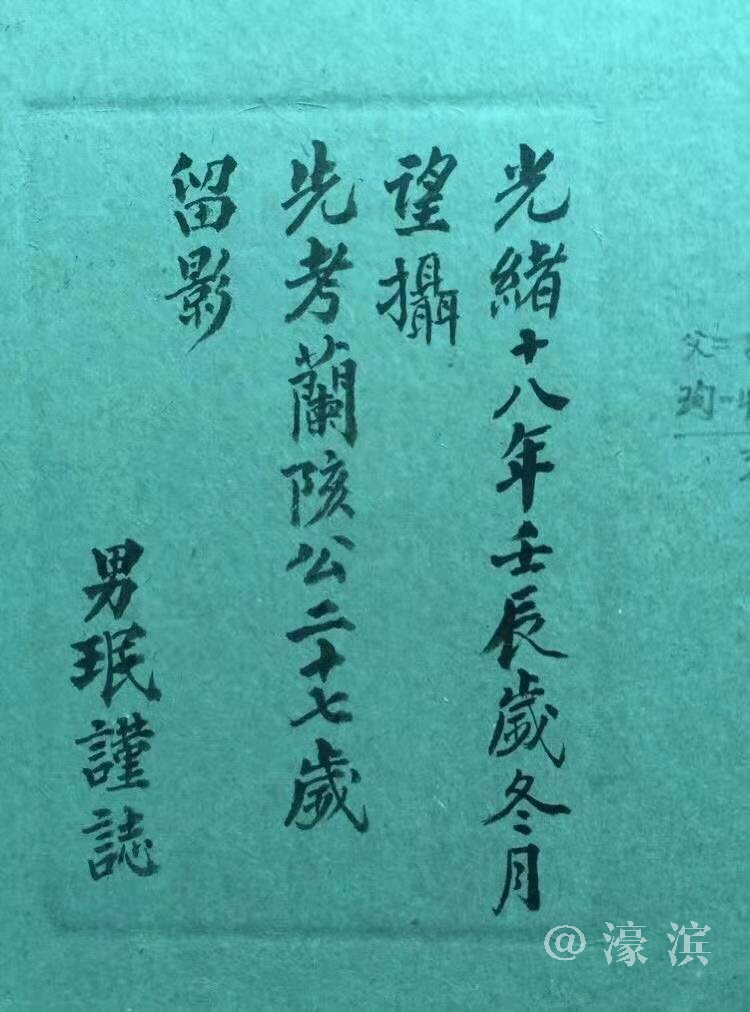 光緒十八年壬辰歲冬月
望攝
先考蘭陔公二十七歲
留影
男珉謹誌
父二
珣
@濠滨